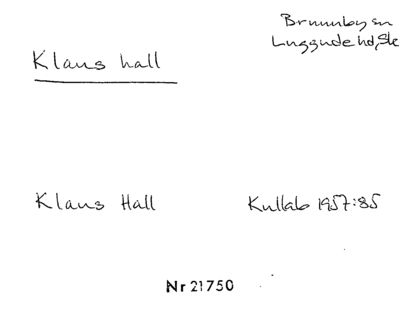 Brunnby sn
Luggude hd, Sk
Klaus hall
Klaus Hall Kullab 1957:85
Nr 21750